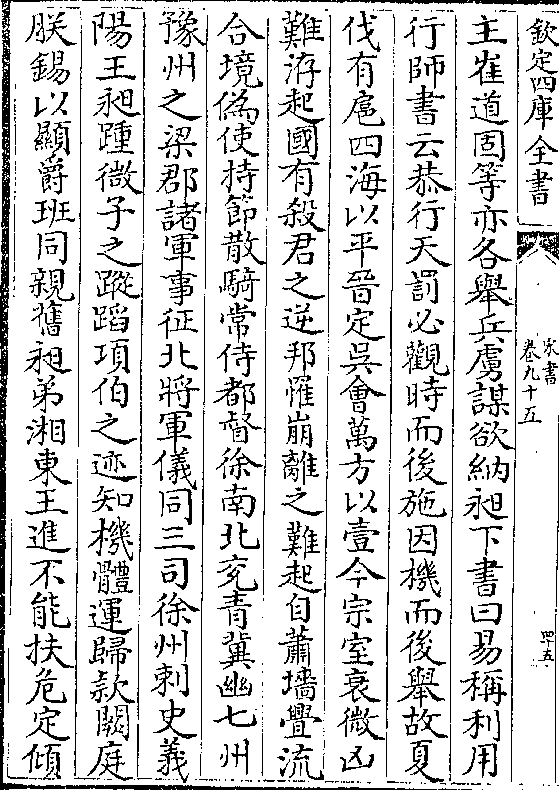 欽定四庫全書
宋書
卷九十五
四五
主崔道固等亦各舉兵虜謀欲納昶下書曰易稱利用
行師書云恭行天罰必觀時而後施因機而後舉故夏
伐有扈四海以平晉定吳會萬方以壹今宗室衰微凶
難洊起國有殺君之逆邦罹崩離之難起自蕭墻釁流
合境偽使持節散騎常侍都督徐南北兖青冀幽七州
豫州之梁郡諸軍事征北將軍儀同三司徐州刺史義
陽王昶踵微子之蹤蹈項伯之迹知機體運歸款闕庭
朕錫以顯爵班同親舊昶弟湘東王進不能扶危定傾